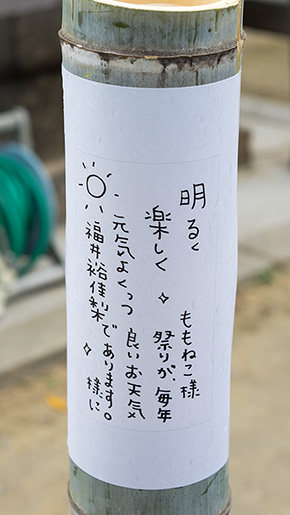 明るく
ももねこ様
楽しく ✧ 祭りが、毎年
元気よくっつ 良いお天気
福井裕佳梨であります。
✧ 様に